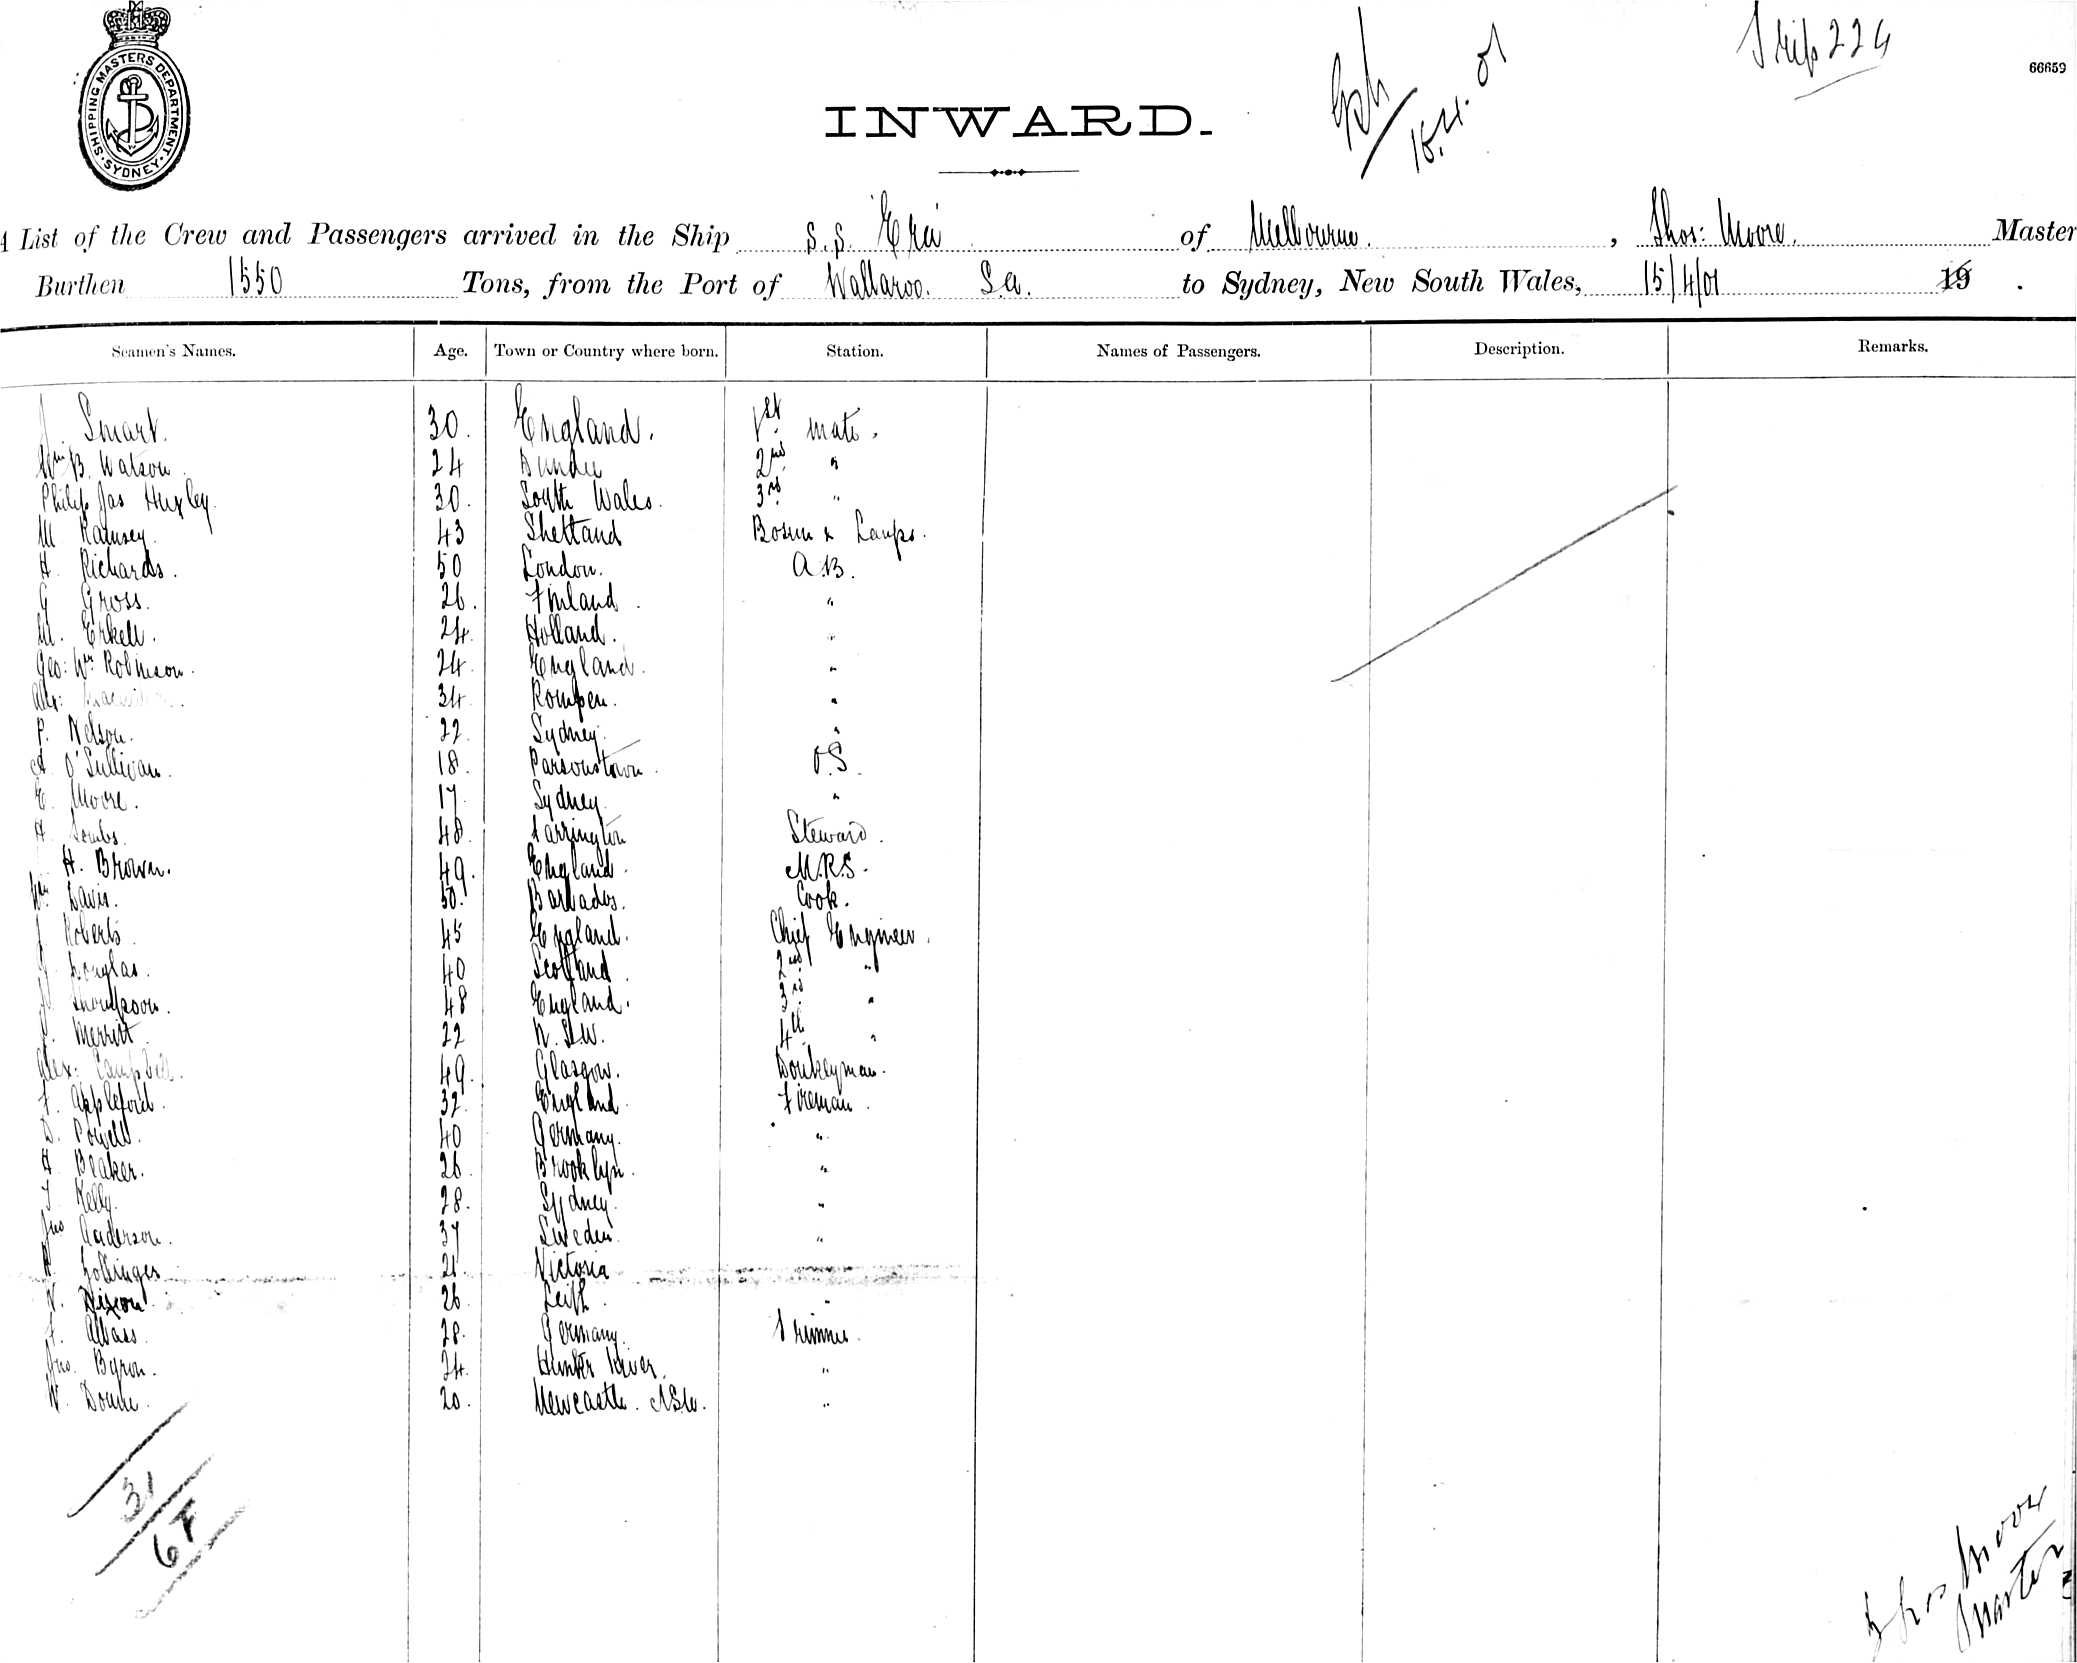 SHIPPING MASTERS DEPARTMENT · SYDNEY ·
66659
15.4.01
INWARD.
A List of the Crew and Passengers arrived in the Ship S.S. Era of Melbourne. , Thos: Moore. Master
Burthen 1550 Tons, from the Port of Wallaroo. S.a. to Sydney, New South Wales, 15/4/01 19 .
Seamen's Names. Age. Town or Country where born. Station. Names of Passengers. Description. Remarks.
J Smart. 30. England. 1st mate.
Wm B. Watson 24 Dundee 2nd "
Philip Jas Huxley. 30. South Wales. 3rd "
M Ramsey. 43 Shetland Bosun & Lamps.
H. Richards. 50 London. A.B.
G Gross. 26. Finland. "
M. Erkell. 24. Holland. "
Geo: Wm Robinson. 24. England. "
Alex: 34 Rompen. "
P. Nelson. 22. Sydney. "
A O'Sullivan. 18. Parsonstown. O.S.
E. Moore. 17. Sydney. "
H 48. Steward.
H. Brown. 49. England. M.R.S.
Wm Davis. 50. Barbados. Cook.
J Roberts. 45 England. Chief Engineer.
J Douglas. 40 Scotland. 2nd "
J Thompson. 48 England. 3rd "
J. Merritt. 22 N.S.W. 4th "
Alex: Campbell. 49. Glasgow. Donkeyman.
F. Appleford. 32. England. Fireman.
D. Powell. 40 Germany. "
H Beaker. 26. Brooklyn. "
T Kelly. 28. Sydney. "
Jno Anderson. 37 Sweden. "
21. Victoria
N. Dixon. 26. Leith. "
F. Albass. 28. Germany. Trimmer.
Jno. Byron. 24. Hunter River. "
W. Doune. 20. Newcastle. NSW. "
31
67
Thos Moore
Master